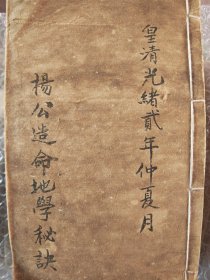 皇清光緒貳年仲夏月
楊公造命地學秘訣